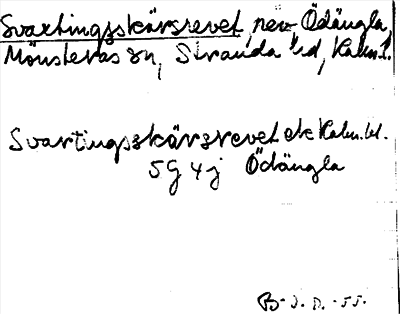 Svartingsskärsrevet, rev, Ödängla,
Mönsterås sn, Stranda hd, Kalm. l.
Svartingsskärsrevet ek Kalm. bl.
5G 4j Ödängla
B. J. D. -55.